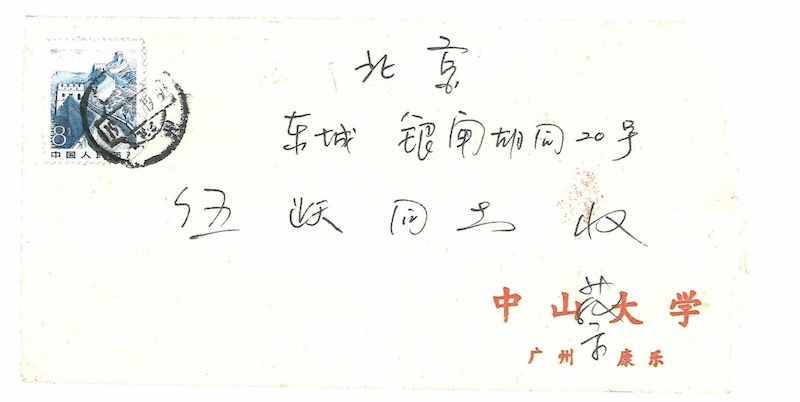 8
中国人民邮
北京
东城 银闸胡同20号
伍跃同志 收
中山大学
蔡
广州 康乐